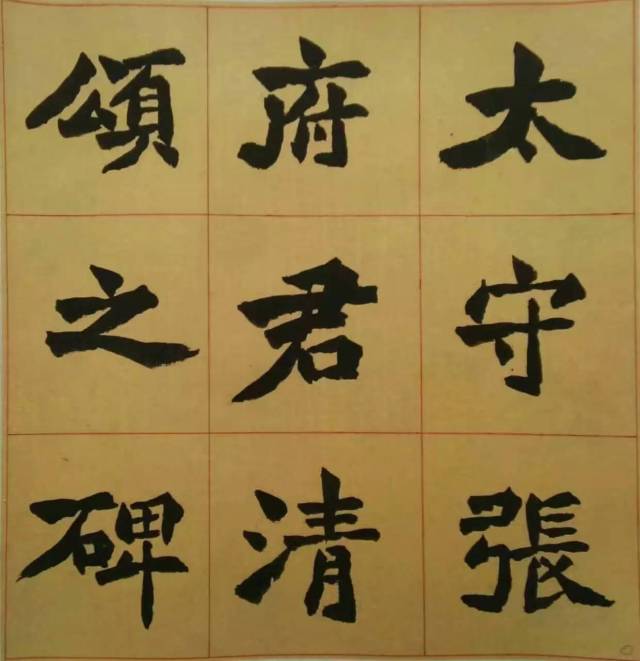 太守張
府君清
頌之碑